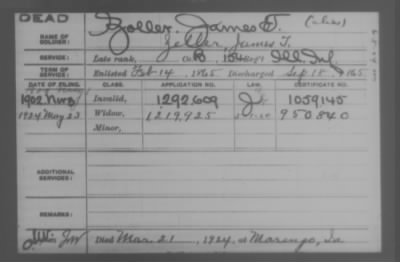 DEAD
Zoller, James T. (alias)
NAME OF SOLDIER:
Zeller, James T.
SERVICE:
Late rank, Co. B, 154 Reg't Ill. Inf.
TERM OF SERVICE:
Enlisted Feb 14, 1865 Discharged Sep. 18, 1865
DATE OF FILING. CLASS. APPLICATION NO. LAW. CERTIFICATE NO.
1902 Invalid, 1292609 1059145
1924 May 23 Widow, 1219925 950840
Minor,
ADDITIONAL SERVICES:
REMARKS:
Died Mar. 21, 1924, at Marengo, Ia